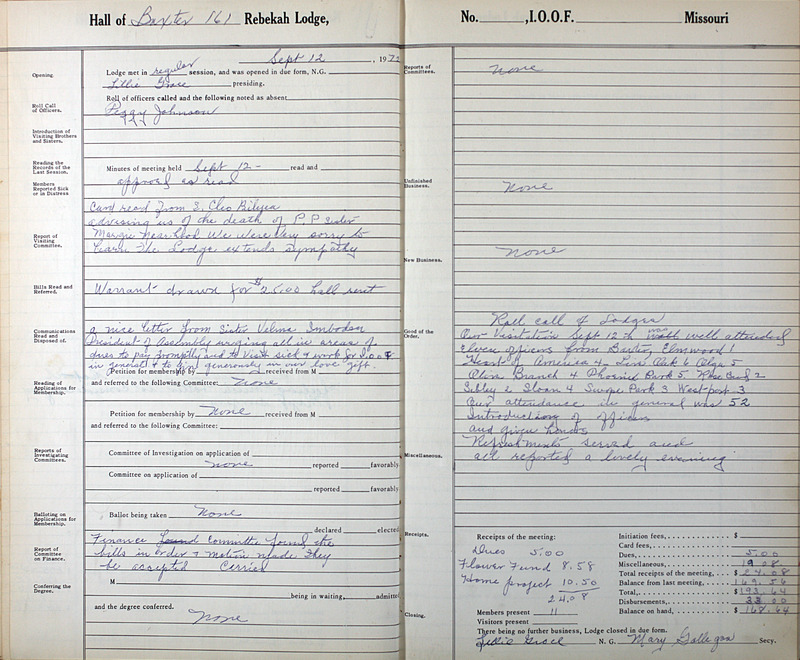 Hall of Baxter 161 Rebekah Lodge,
Sept 12, 1972
Opening.
Lodge met in regular session, and was opened in due form, N.G.
Lillie Grace presiding.
Roll Call of Officers.
Roll of officers called and the following noted as absent
Peggy Johnson
Introduction of Visiting Brothers and Sisters.
Reading the Records of the Last Session.
Minutes of meeting held Sept 12 - read and
approved as read
Members Reported Sick or in Distress
Card read from S. Cleo Bilyea
advising us of the death of P.P Sister
Report of Visiting Committee.
Margie We were very sorry to
learn The Lodge extends sympathy
Bills Read and Referred.
Warrant drawn for $25.00 hall rent
Communications Read and Disposed of.
a nice letter from Sister Velma Imboden
President of Assembly urging all in areas of
dues to pay promptly and to visit sick & work for I.O.O.F
in general & to give generously in our love gift.
Petition for membership by received from M
Reading of Applications for Membership.
and referred to the following Committee: None
Petition for membership by None received from M
and referred to the following Committee:
Reports of Investigating Committees.
Committee of Investigation on application of
none reported favorably
Committee on application of
reported favorably
Balloting on Applications for Membership.
Ballot being taken None
declared elected
Report of Committee on Finance.
Finance Committee found the
bills in order & motion made they
be accepted Carried
Conferring the Degree.
M
being in waiting, admitted
and the degree conferred.
None
No. , I.O.O.F. Missouri
Reports of Committees.
None
Unfinished Business.
None
New Business.
None
Good of the Order.
Roll call of Lodges
Our Visitation Sept 12th was well attended
Eleven officers from Baxter, Elmwood 1
Heart of America 4 Live Oak 6 Olga 5
Olive Branch 4 Phoenix Park 5 2
Sibley 2 Sloan 4 Swope Park 3 Westport 3
Our attendance in general was 52
Introduction of officers
and given honors
Refreshments served and
Miscellaneous.
all reported a lovely evening
Receipts.
Receipts of the meeting:
Dues 5.00
Flower Fund 8.58
Home project 10.50
24.08
Members present 11
Visitors present
Initiation fees, $
Card fees,
Dues, 5.00
Miscellaneous, 19.08
Total receipts of the meeting, $ 24.08
Balance from last meeting, 169.56
Total, $ 193.64
Disbursements,
Balance on hand, $ 168.64
Closing.
There being no further business, Lodge closed in due form.
Lillie Grace N. G. Mary Gallegos Secy.